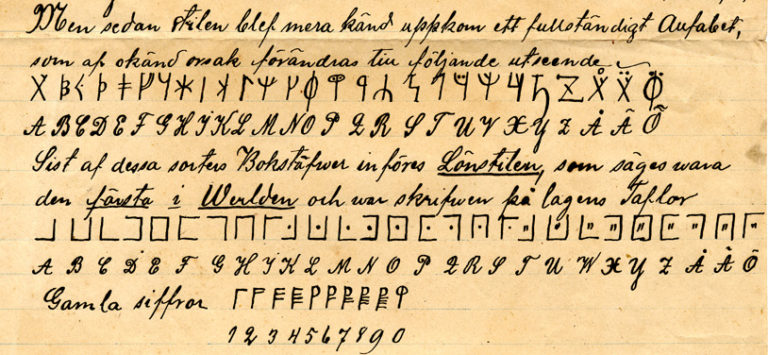 Men sedan stilen blef mera känd uppkom ett fullständigt Aufabet,
som af okänd orsak förändras till följande utseende
A B C D E F G H I K L M N O P Q R S T U V X Y Z Å Ä Ö
Sist af dessa sorters Bokstäfwer införes Lönstilen, som säges wara
den första i Werlden och war skrifwen på lagens Taflor
A B C D E F G H I K L M N O P Q R S T U W X Y Z Å Ä Ö
Gamla siffror
1 2 3 4 5 6 7 8 9 0